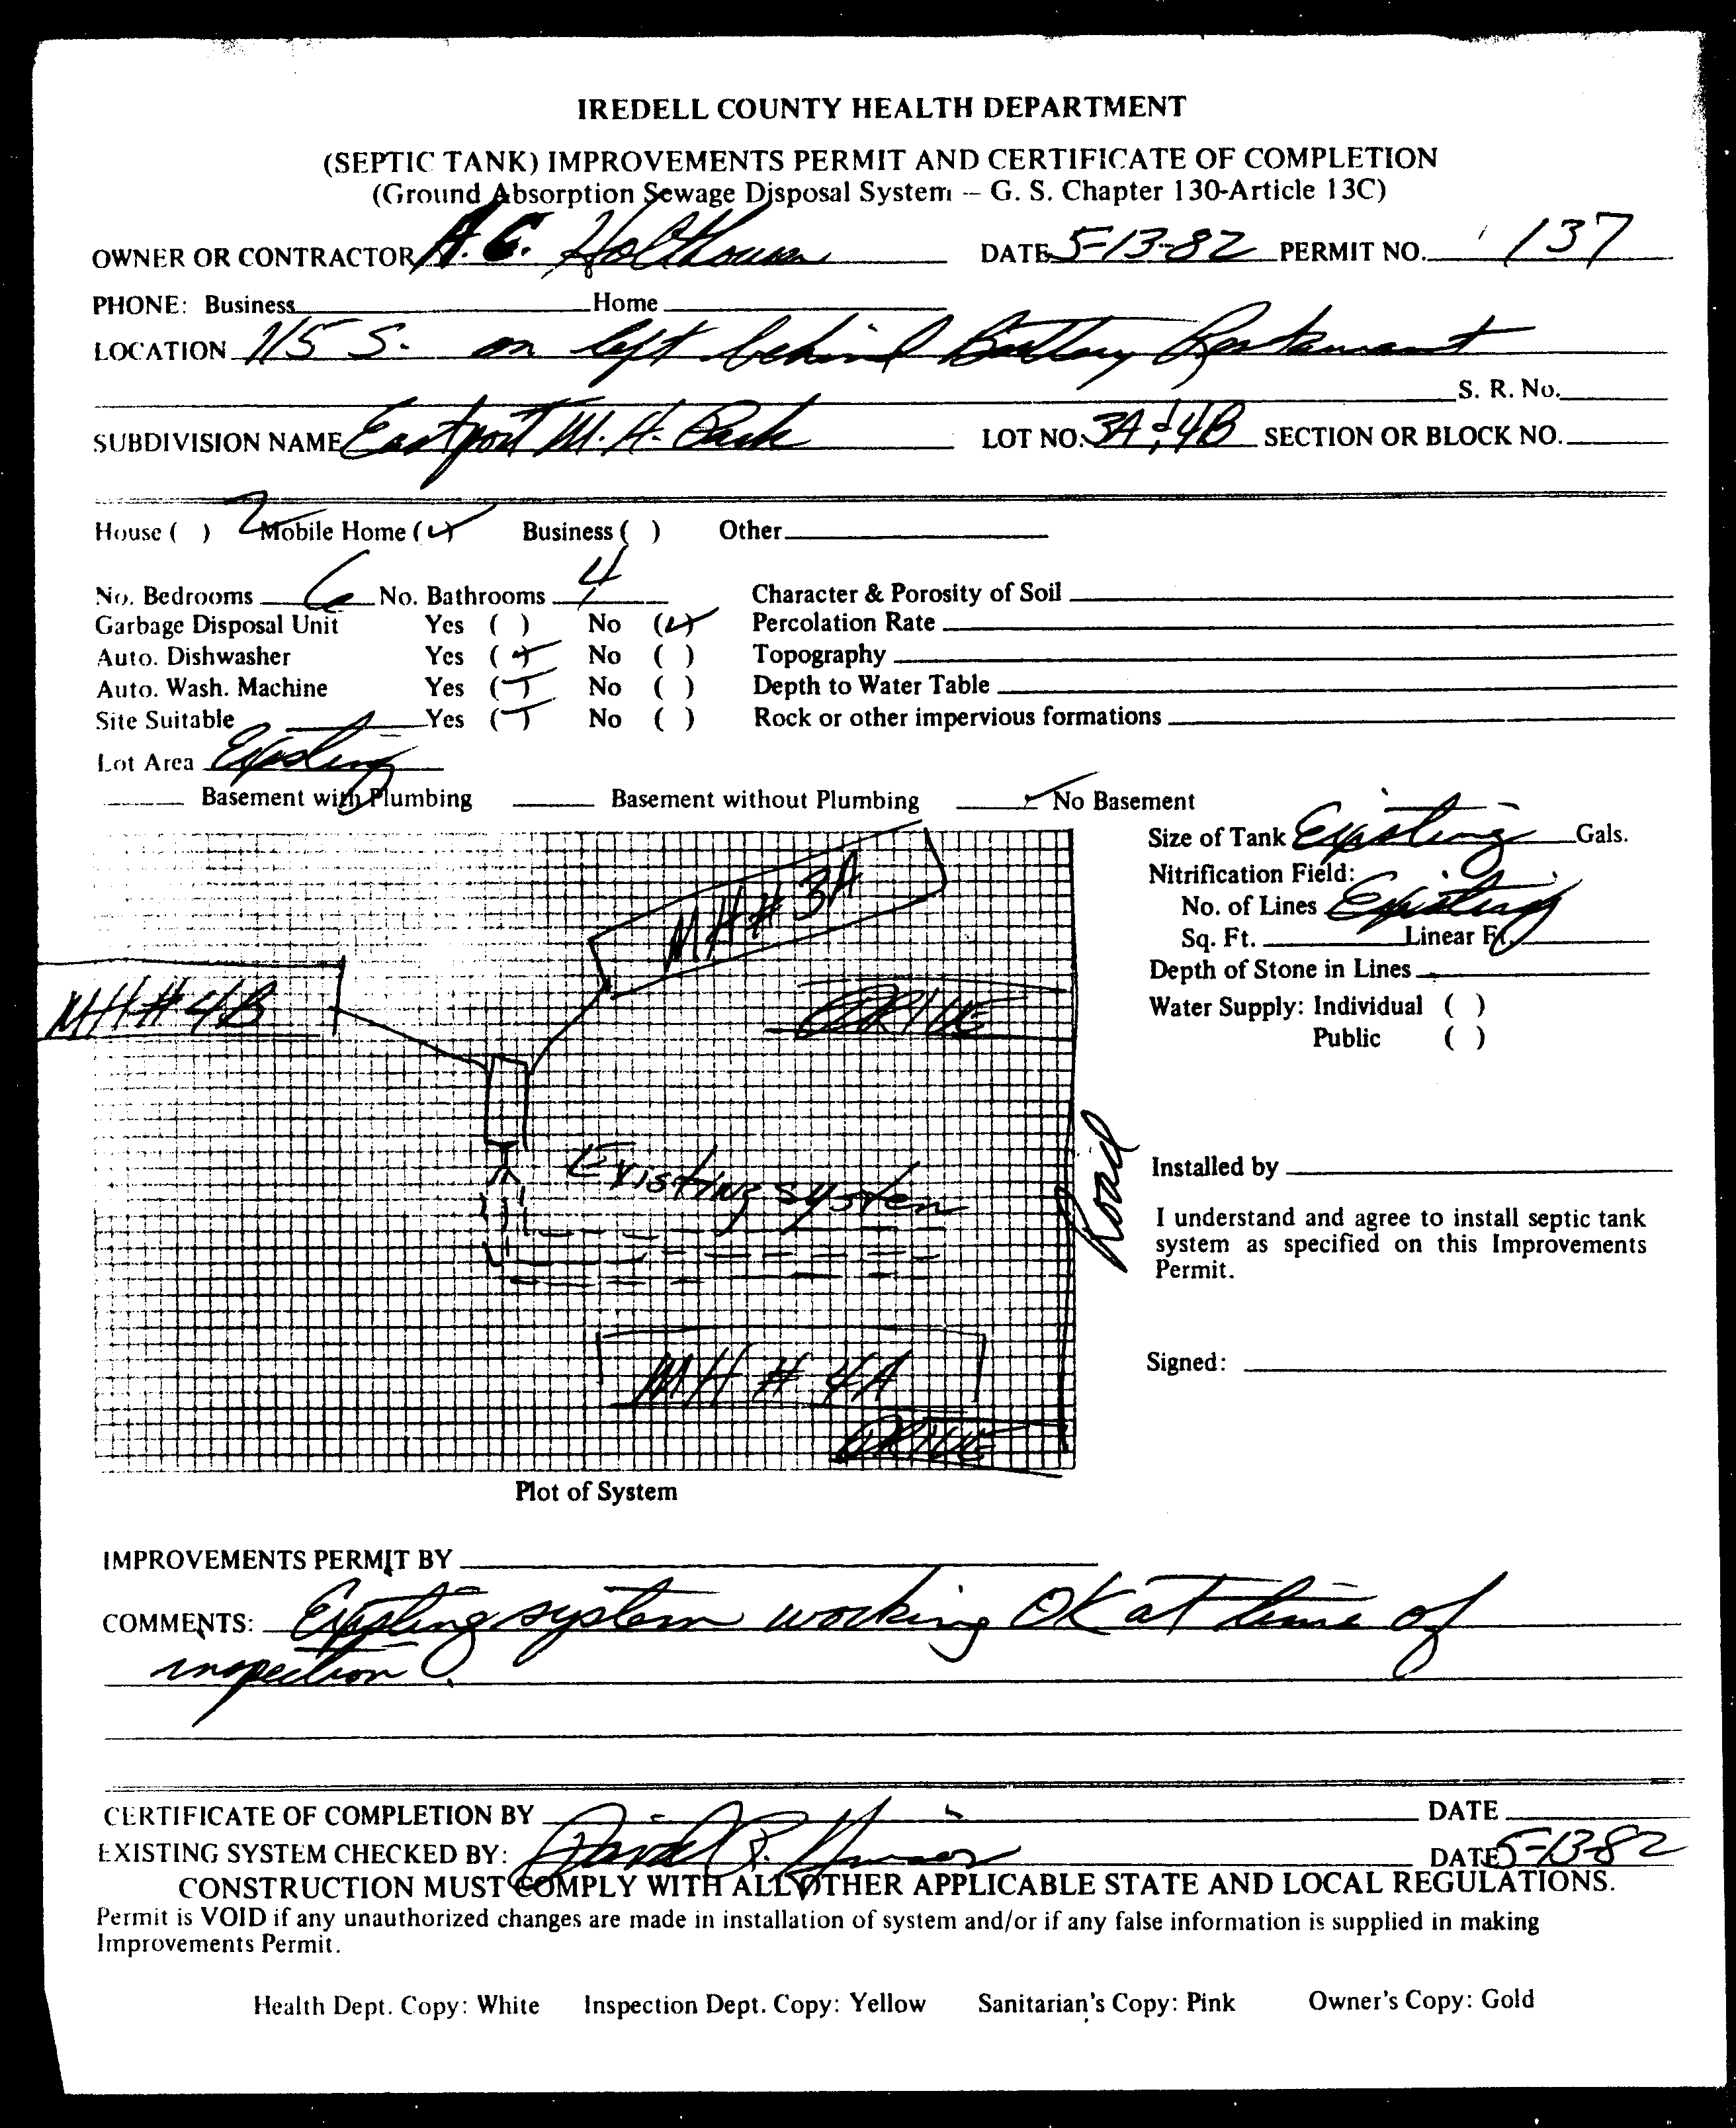 IREDELL COUNTY HEALTH DEPARTMENT
(SEPTIC TANK) IMPROVEMENTS PERMIT AND CERTIFICATE OF COMPLETION
(Ground Absorption Sewage Disposal System – G. S. Chapter 130-Article 13C)
OWNER OR CONTRACTOR A.C. Holthouser DATE 5-13-82 PERMIT NO. 137
PHONE: Business Home
LOCATION 115 S. on left behind Restaurant
S. R. No.
SUBDIVISION NAME Eastport M. H. Park LOT NO. 3A & 4B SECTION OR BLOCK NO.
House ( ) 2 Mobile Home (✓) Business ( ) Other
No. Bedrooms 6 No. Bathrooms 4 Character & Porosity of Soil
Garbage Disposal Unit Yes ( ) No (✓) Percolation Rate
Auto. Dishwasher Yes (✓) No ( ) Topography
Auto. Wash. Machine Yes (✓) No ( ) Depth to Water Table
Site Suitable Yes (✓) No ( ) Rock or other impervious formations
Lot Area Existing
Basement with Plumbing Basement without Plumbing ✓ No Basement
Size of Tank Existing Gals.
Nitrification Field:
No. of Lines Existing
Sq. Ft. Linear Ft.
Depth of Stone in Lines
Water Supply: Individual ( )
Public ( )
MH # 3A
MH # 4B
DRIVE
Existing system
Road
MH # 4A
DRIVE
Installed by
I understand and agree to install septic tank
system as specified on this Improvements
Permit.
Signed:
Plot of System
IMPROVEMENTS PERMIT BY
COMMENTS: Existing system working OK at time of
inspection.
CERTIFICATE OF COMPLETION BY DATE
EXISTING SYSTEM CHECKED BY: David R. DATE 5-13-82
CONSTRUCTION MUST COMPLY WITH ALL OTHER APPLICABLE STATE AND LOCAL REGULATIONS.
Permit is VOID if any unauthorized changes are made in installation of system and/or if any false information is supplied in making
Improvements Permit.
Health Dept. Copy: White Inspection Dept. Copy: Yellow Sanitarian's Copy: Pink Owner's Copy: Gold